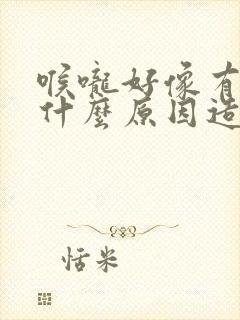 喉嚨好像有
什麼原因造
恬米